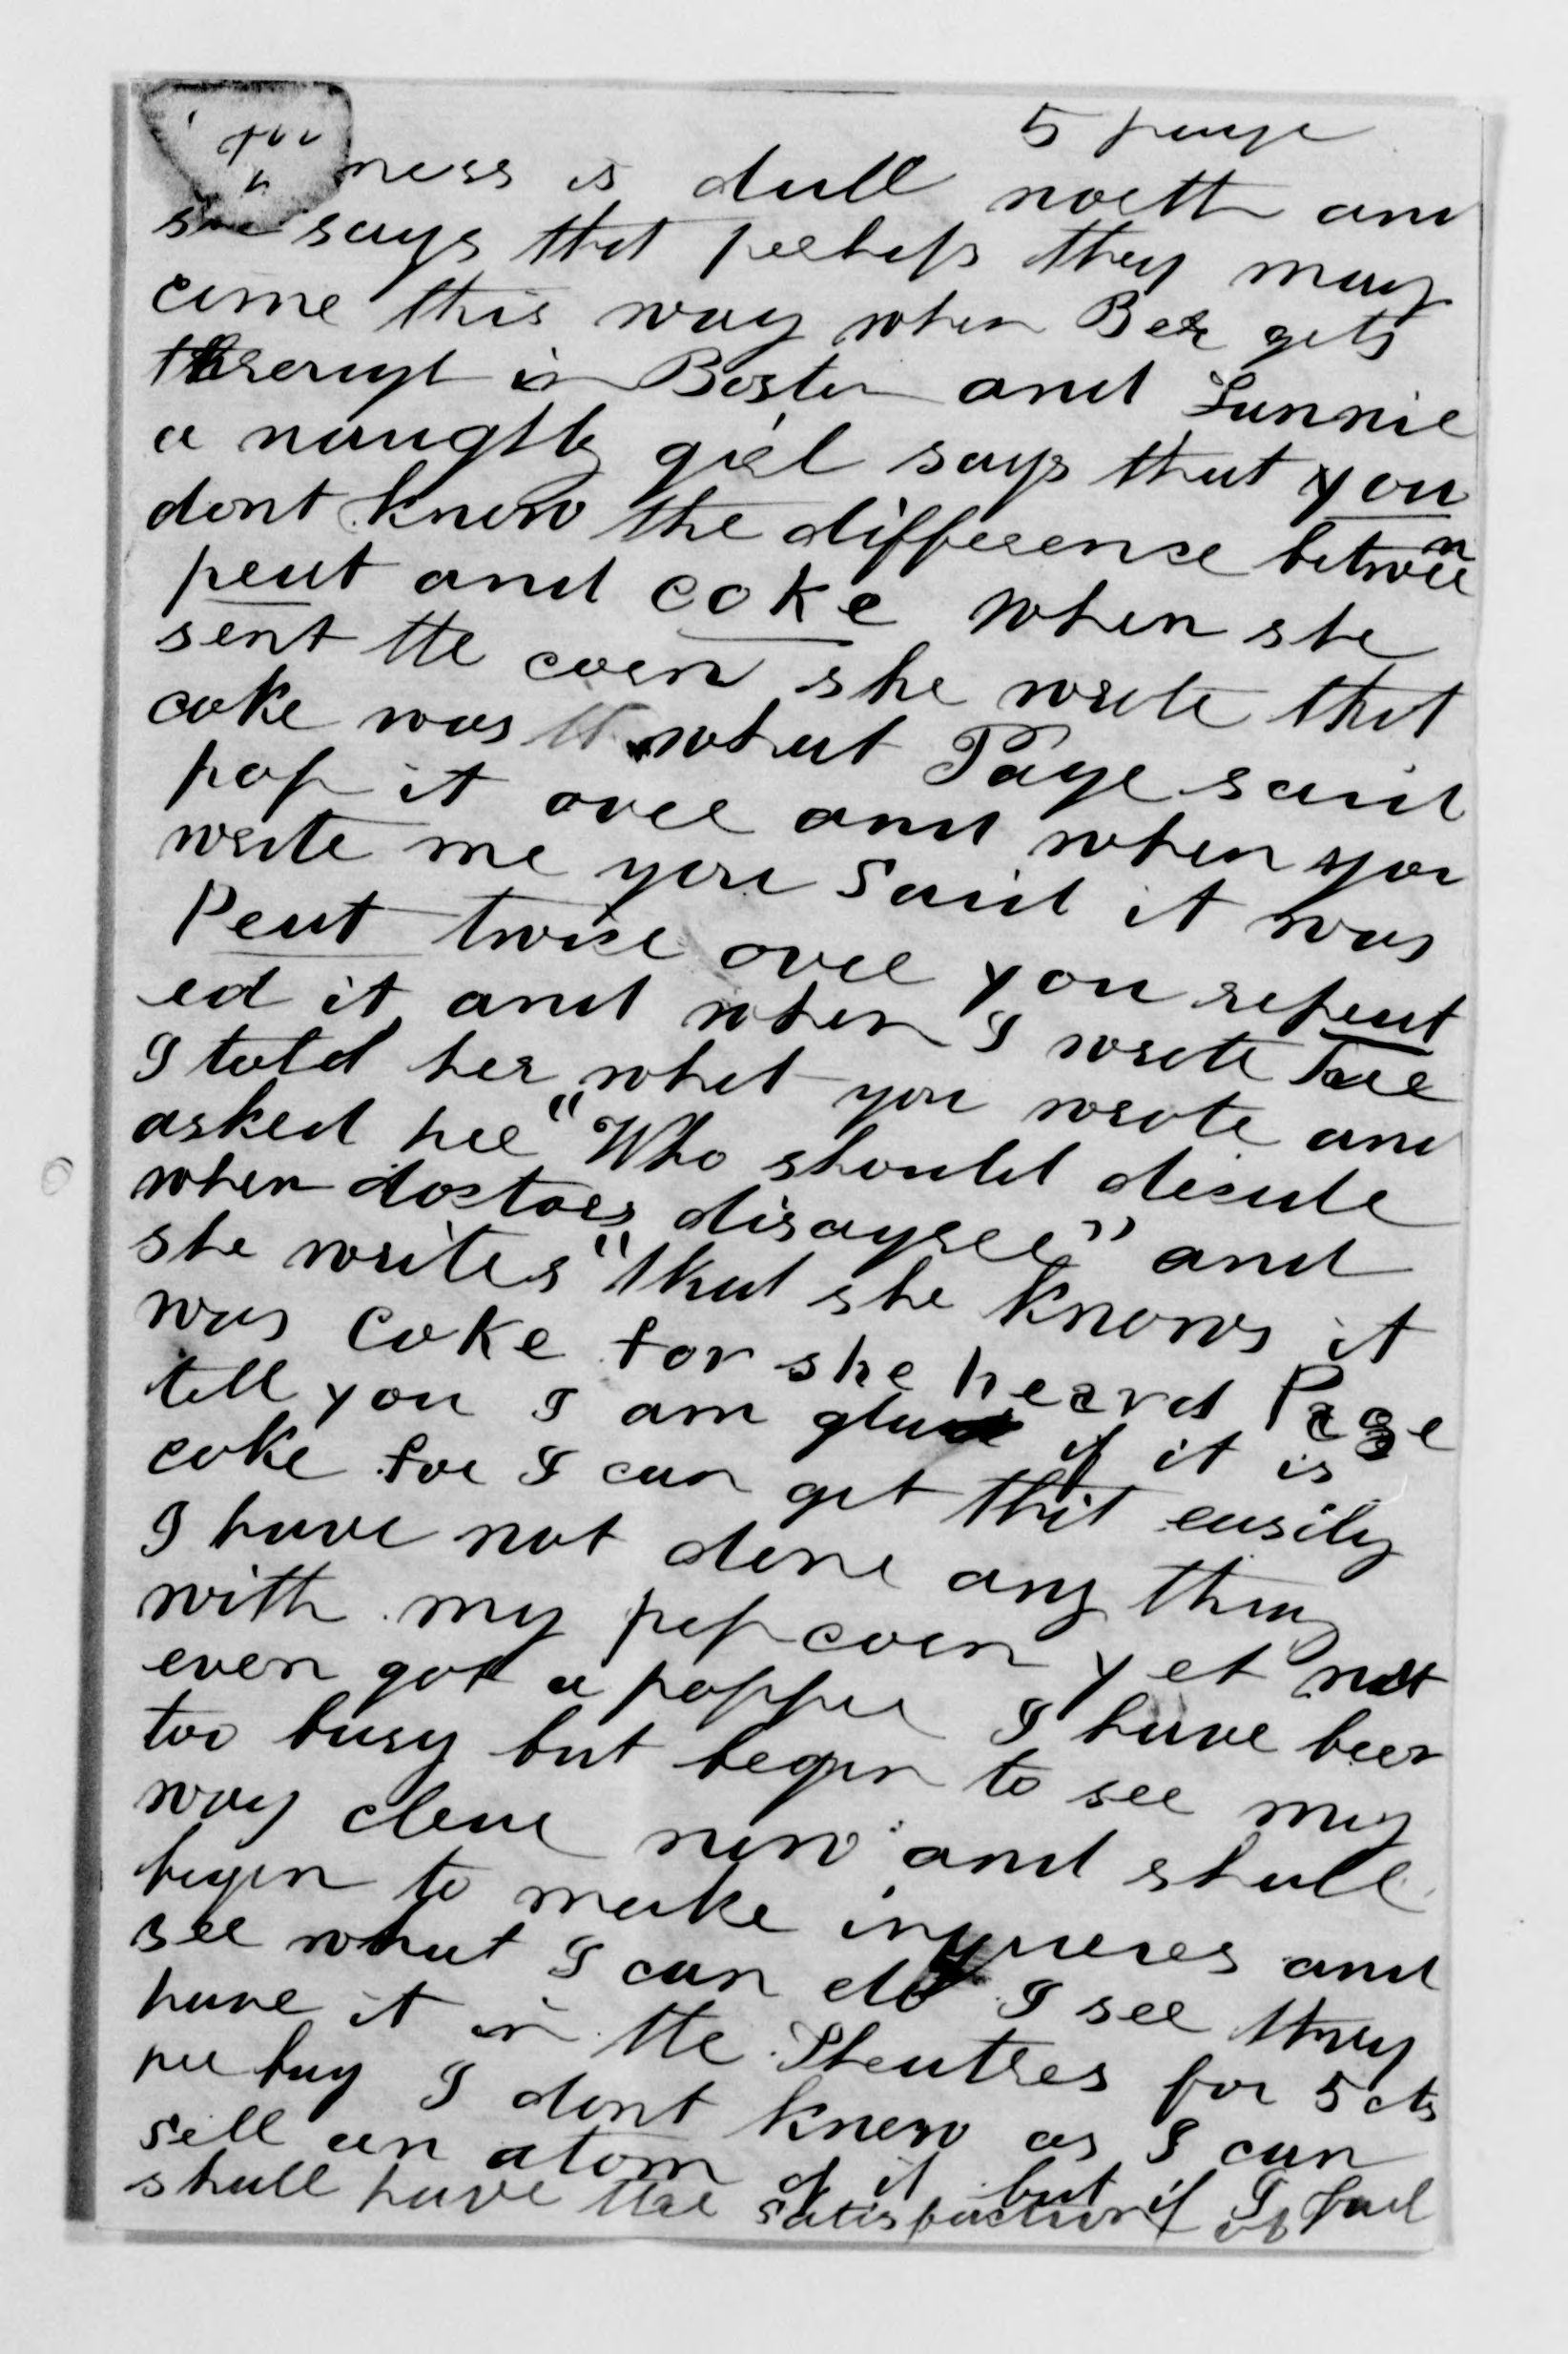 5 page
ness is dull north and
she says that perhaps they may
come this way when Ber gets
through in Boston and Fannie
a naughty girl says that you
dont know the difference between
peat and coke when she
sent the corn she wrote that
coke was what Page said
pop it over and when you
wrote me you said it was
Peat twise over you repeat
ed it and when I wrote her
I told her what you wrote and
asked her "Who should deside
when dostors disagree" and
she writes "that she knows it
was coke for she heard Page
tell you I am glad if it is
coke for I can get that easily
I have not done any thing
with my pop corn yet not
even got a popper I have been
too busy but begin to see my
way clear now and shall
begin to make inquires and
see what I can do I see they
have it in the Theatres for 5 cts
per bag I dont know as I can
sell an atom of it but if I fail
shall have the satisfaction of